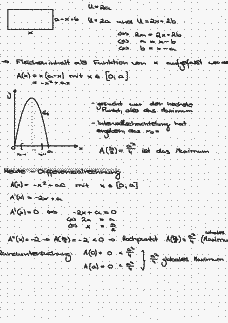 U = 2a
a-x=b
U = 2a muss U = 2x + 2b
x
⇔ 2a = 2x + 2b
⇔ a = x + b
⇔ b = x - a
→ Flächeninhalt als Funktion von x aufgefasst werden
A(x) = x(a-x) mit x ∈ [0, a]
= -x² + ax
y
- gesucht wird der höchste Punkt, also das Maximum
- Intervallschachtelung hat ergeben, das x₀ =
x
A(a/2) = a²/4 ist das Maximum
Heute - Differenzialrechnung
A(x) = -x² + ax mit x ∈ [0, a]
A'(x) = -2x + a
A'(x) = 0 ⇔ -2x + a = 0
⇔ 2x = a
⇔ x = a/2
A''(x) = -2 → A(a/2) = -2 < 0 → Hochpunkt A(a/2) = a²/4 (lokales Maximum
Randuntersuchung: A(0) = 0 < a²/4
A(a) = 0 < a²/4
a²/4 globales Maximum